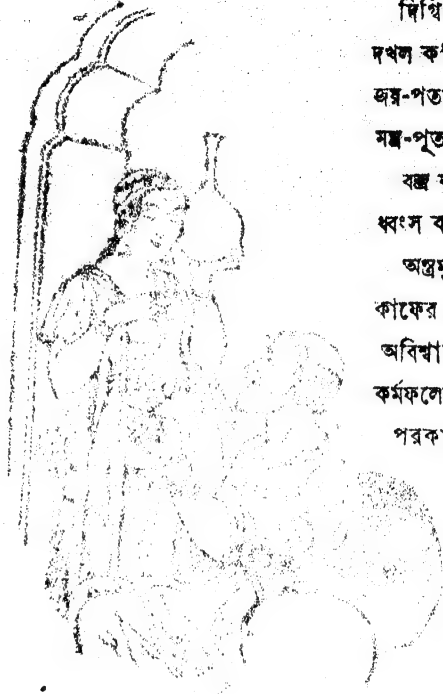 দিগ্বি
দখল ক
জয়-পত
মন্ত্র-পূত
বজ্র
ধ্বংস ব
অস্ত্রমু
কাফের
অবিশ্বা
কর্মফলে
পরক